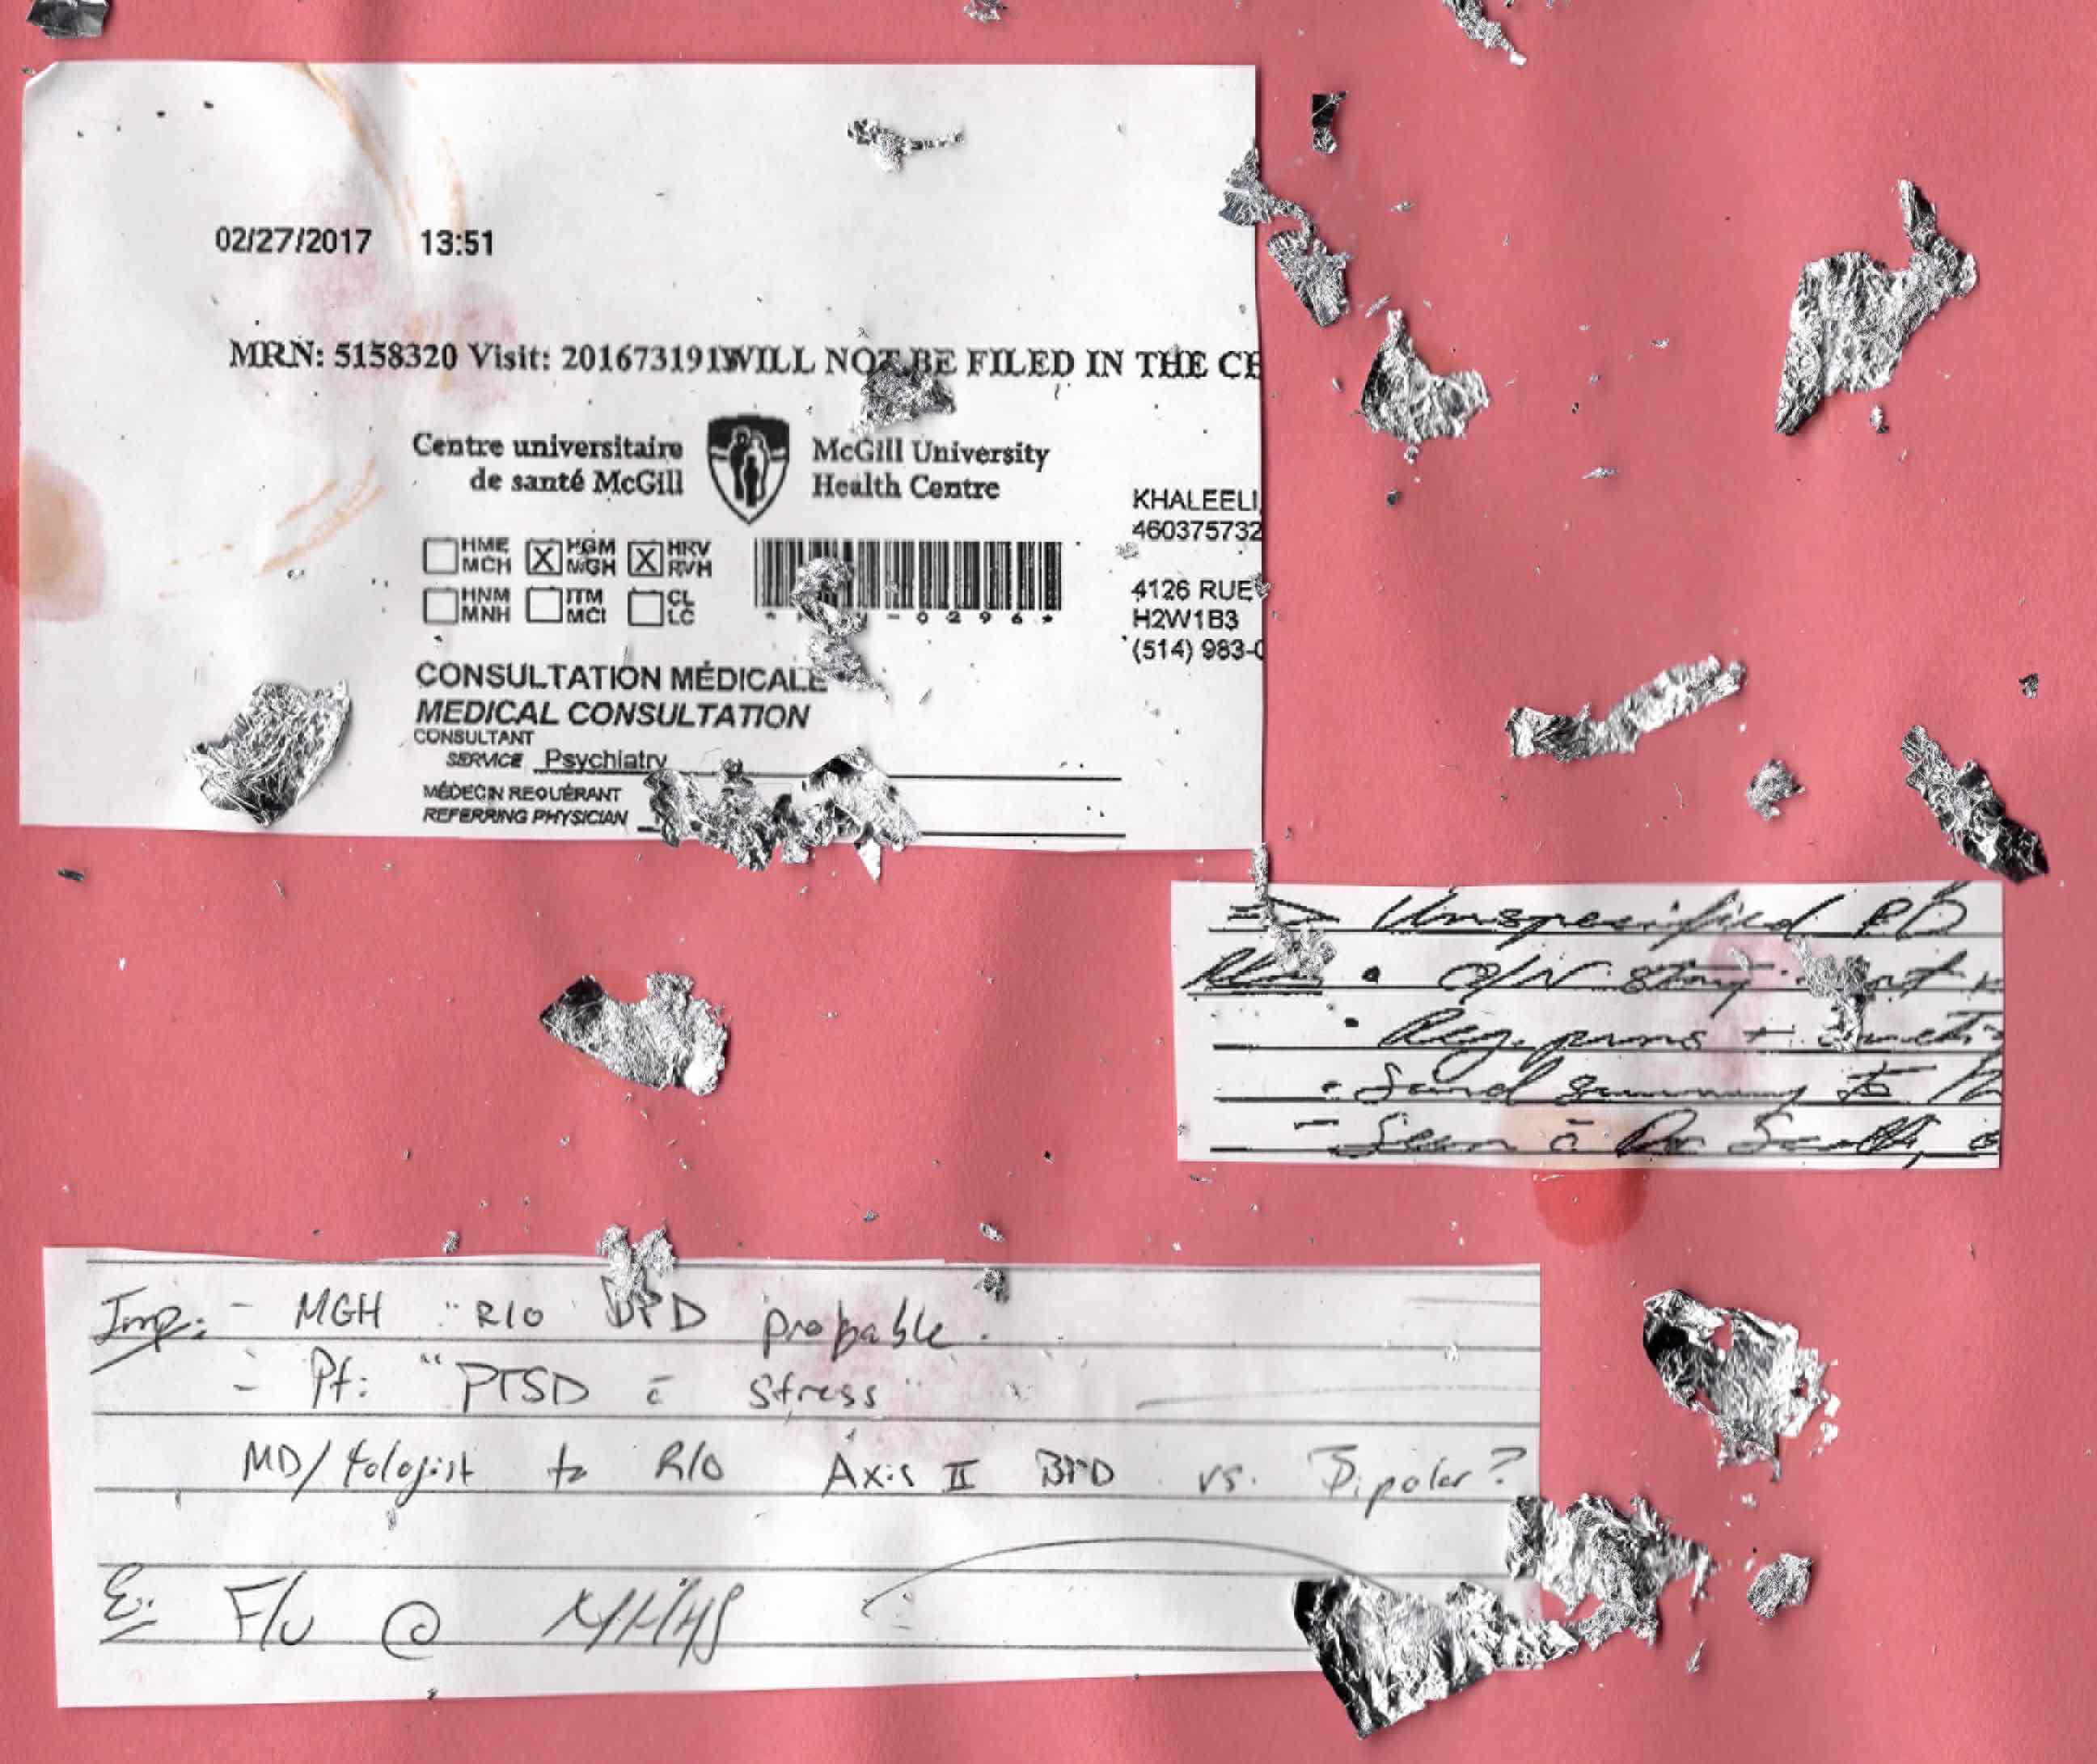 02/27/2017 13:51
MRN: 5158320 Visit: 201673191WILL NOT BE FILED IN THE CE
Centre universitaire
de santé McGill
McGill University
Health Centre
KHALEELI
460375732
4126 RUE
H2W1B3
(514) 983-0
HME
MCH
X HGM
MGH
X HRV
RVH
HNM
MNH
ITM
MCI
CL
LC
- 0 2 9 6 *
CONSULTATION MÉDICALE
MEDICAL CONSULTATION
CONSULTANT
SERVICE Psychiatry
MÉDECIN REQUÉRANT
REFERRING PHYSICIAN
⇒ Unspecified PD
• O/N stay
• Reg. prns +
• Send summary to
- Seen c̄ Dr
Imp: - MGH "R/o BPD probable.
- Pt: "PTSD c̄ stress"
MD/ to R/o Axis II BPD vs. Bipolar?
F/u @